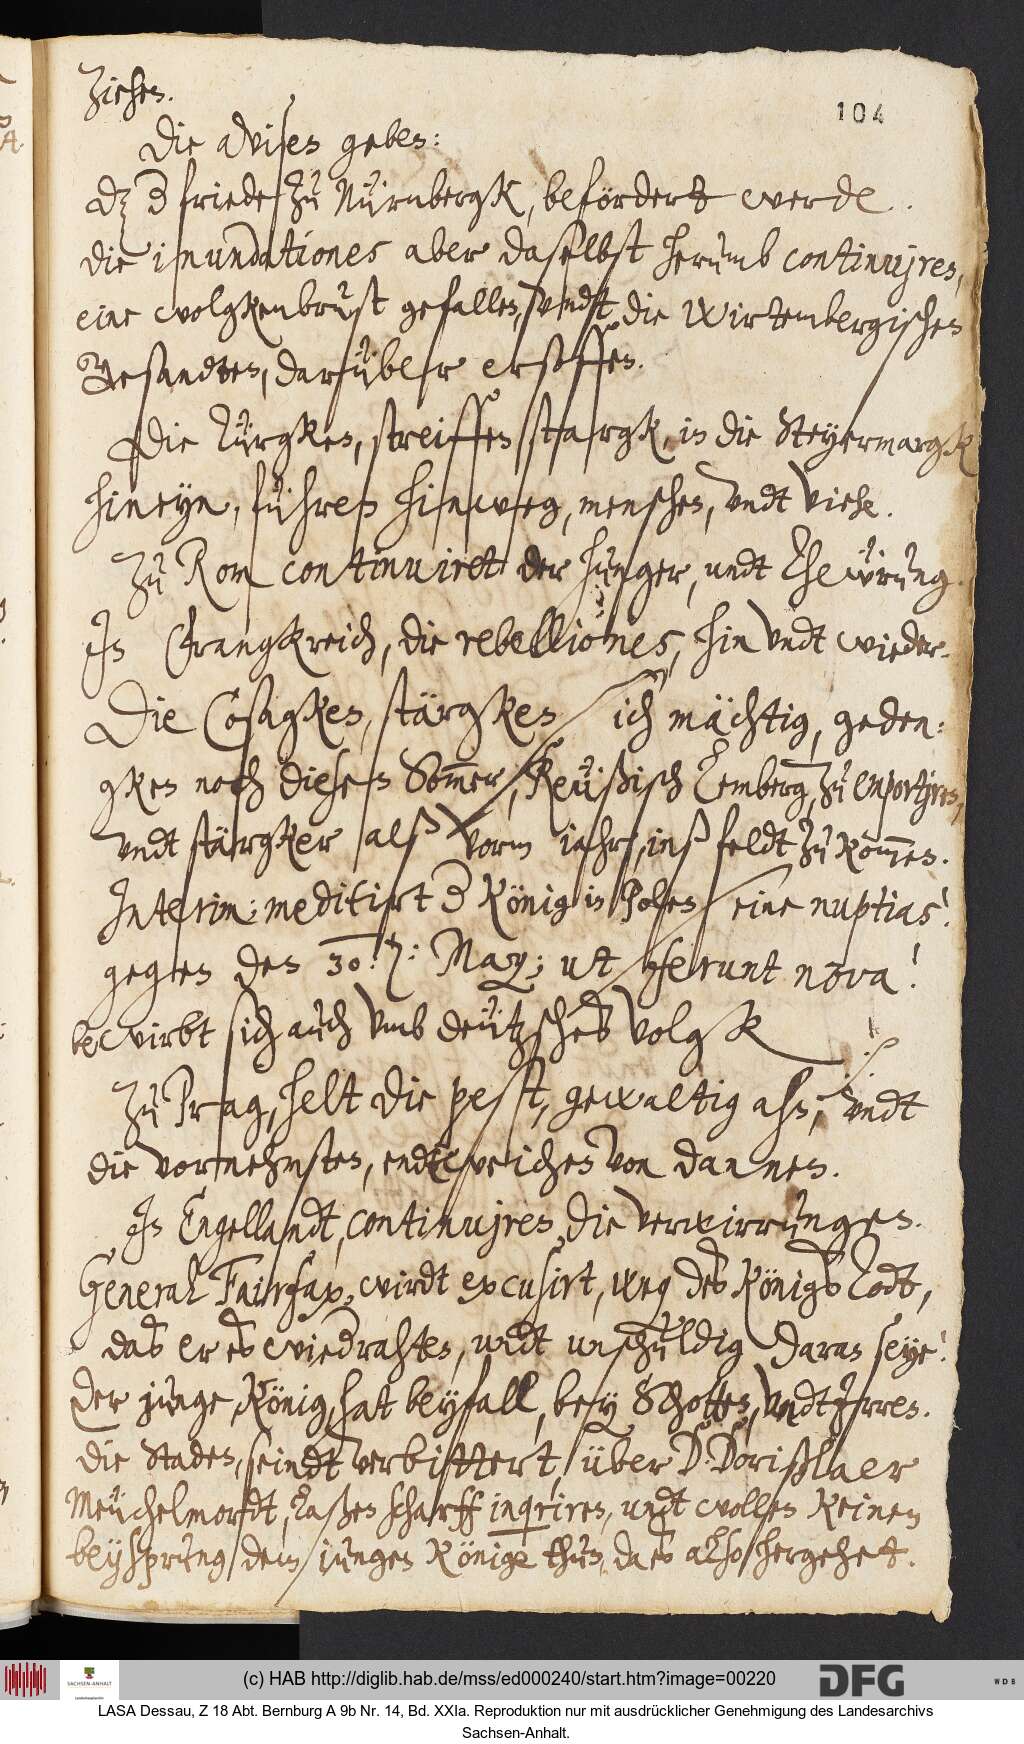 ziehen.
104
Die avisen geben:
dz d friede zu Nürnbergk, befördert werde.
die inundationes aber daselbst herumb continuiren,
eine wolgkenbrust gefallen, undt die Wirtembergischen
Gesandten, darüber ersoffen.
Die Türgken, streiffen stargk, in die Steyermargk
hineyn, führen hinweg, menschen, undt viehe.
Zu Rom continuiret der hunger, undt Thewrung.
In Frangkreich, die rebelliones, hin undt wieder.
Die Cosagken, stärgken sich mächtig, geden:
gken noch diesen Sommer, Reußisch Lemberg, zu emportiren,
undt stärgker alß vorm iahr, inß feldt zu kommen.
Interim: meditirt d König in Polen seine nuptias!
gegen den 30. May; ut ferunt nova!
bewirbt sich auch umb deützsches volgk
Zu Prag, helt die pest, gewaltig ahn, undt
die vornehmsten, entweichen von dannen.
In Engellandt, continuiren, die verwirrungen.
General Fairfax, wirdt excusirt, weg des Königs Todt,
das er es wiedrahten, undt unschuldig daran seye!
Der junge König, hat beyfall, bey Schotten, undt Irren.
die Staden, seindt verbittert, über D. Dorißlaer
Meüchelmordt, laßen scharff inquiriren, undt wollen keinen
beysprung dem jungen Könige thun, da es also hergehet.
(c) HAB http://diglib.hab.de/mss/ed000240/start.htm?image=00220
SACHSEN-ANHALT
DFG
WDB
LASA Dessau, Z 18 Abt. Bernburg A 9b Nr. 14, Bd. XXIa. Reproduktion nur mit ausdrücklicher Genehmigung des Landesarchivs
Sachsen-Anhalt.